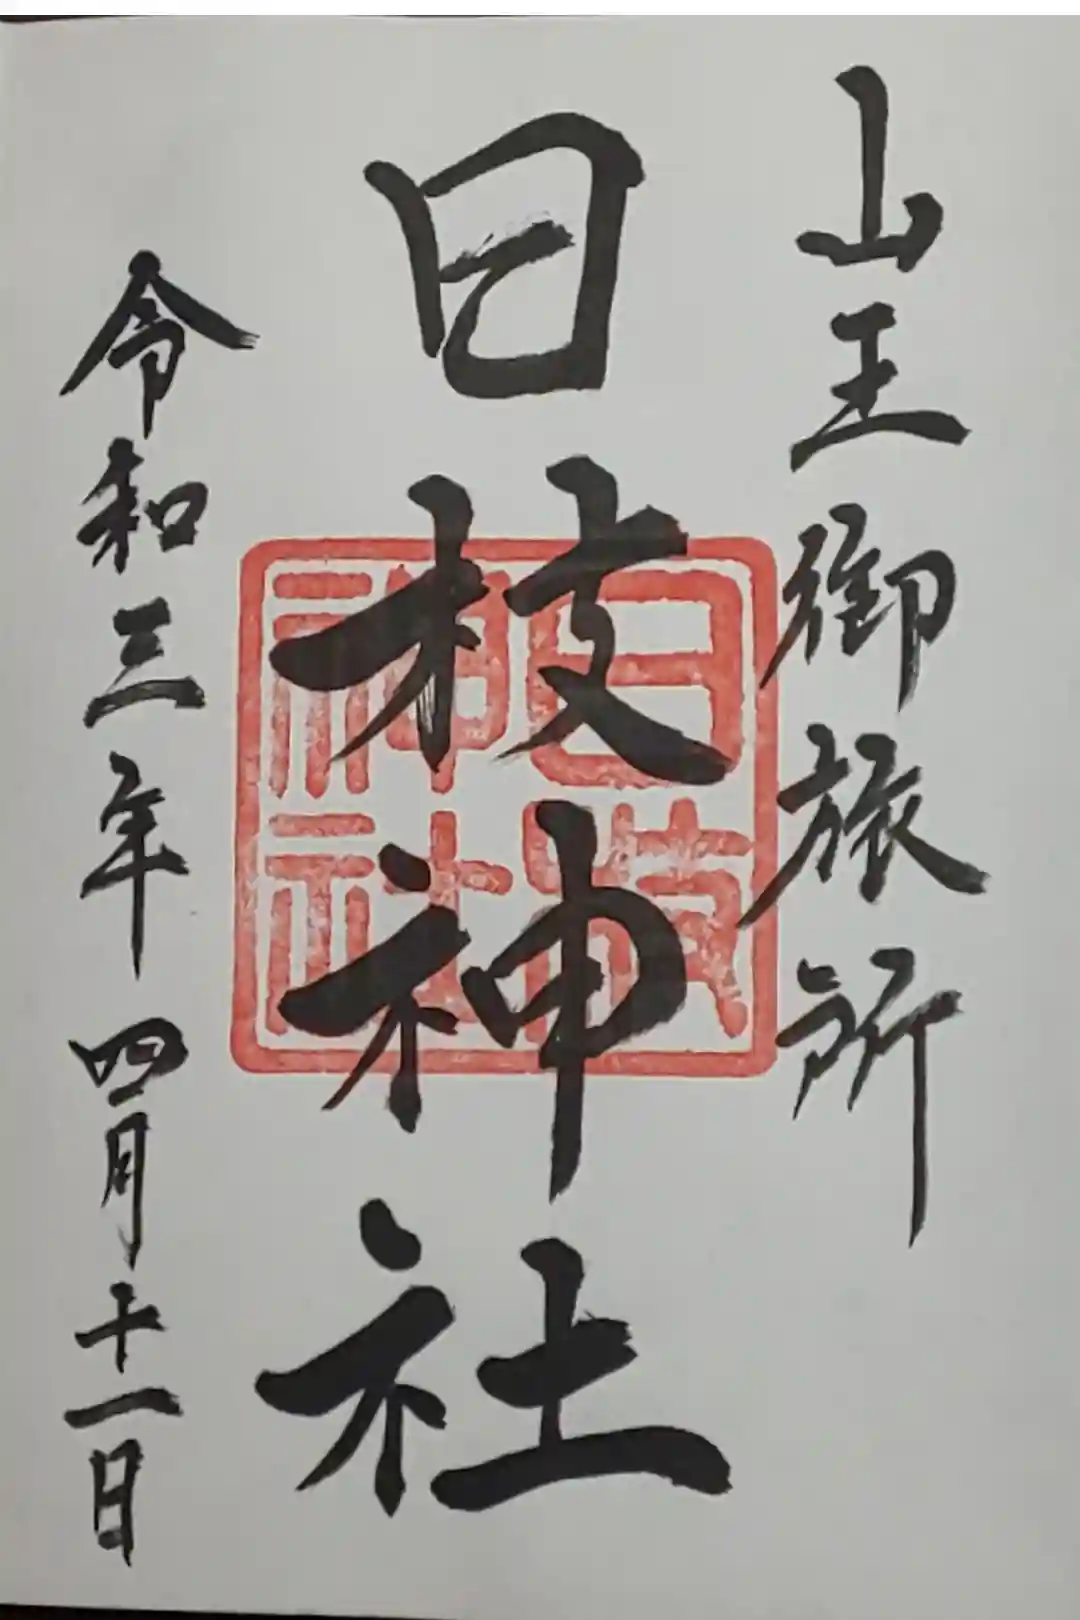 山王御旅所
日枝神社
日枝
神社
令和三年四月十一日